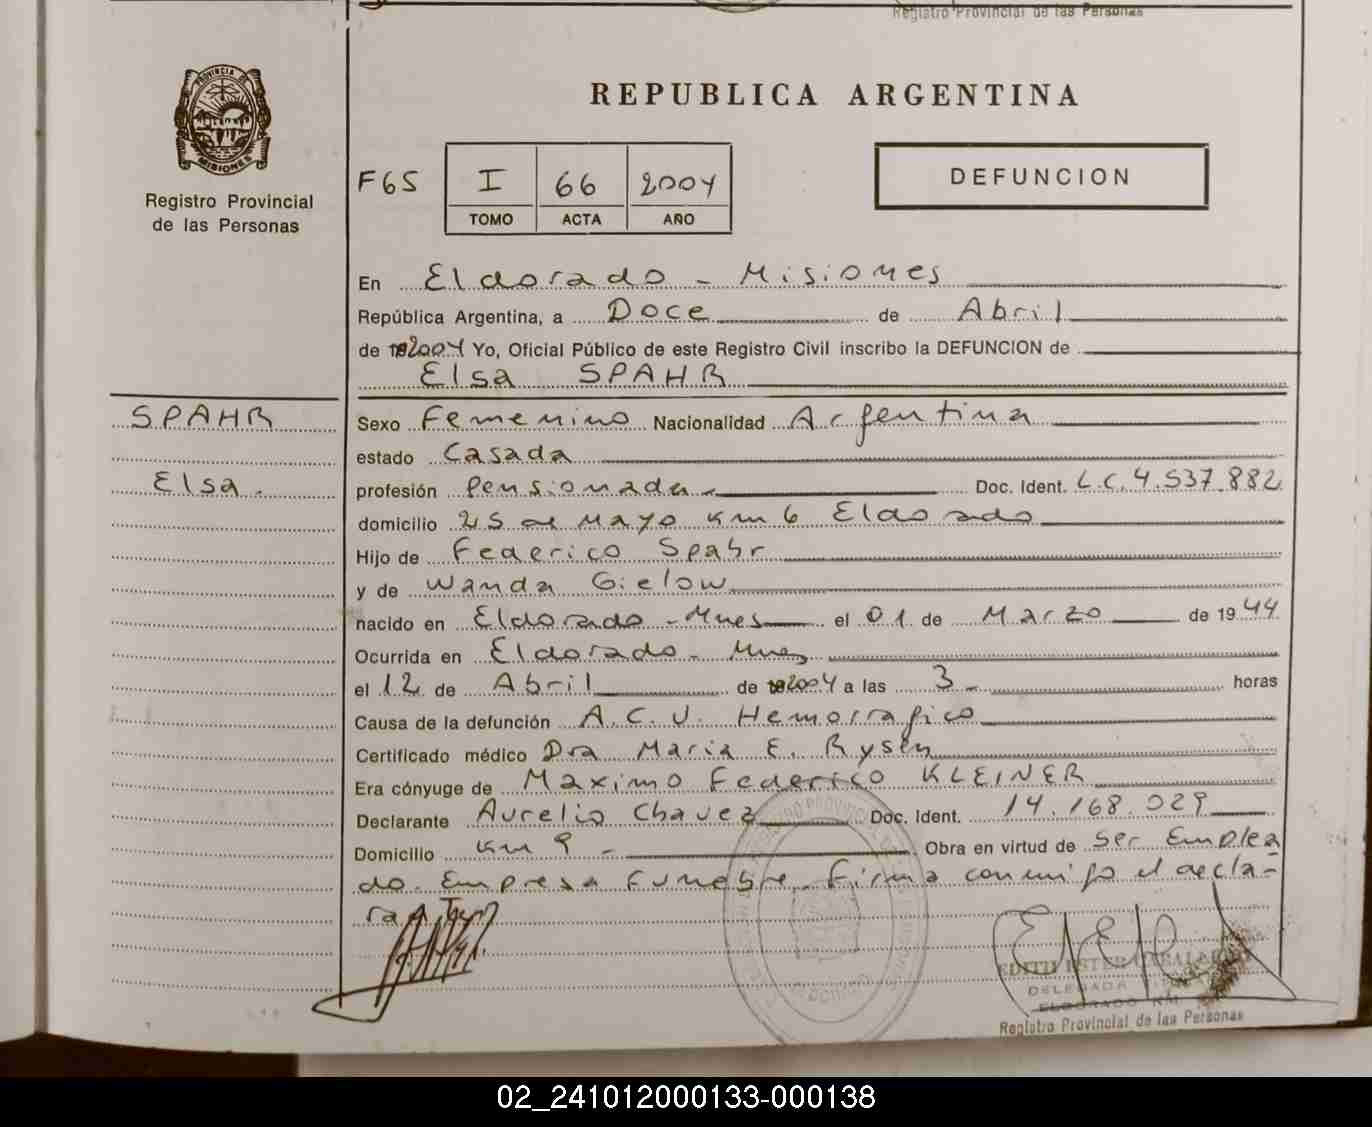 Registro Provincial de las Personas
PROVINCIA DE
MISIONES
Registro Provincial
de las Personas
REPUBLICA ARGENTINA
F65 I 66 2004
TOMO ACTA AÑO
DEFUNCION
En Eldorado - Misiones
República Argentina, a Doce de Abril
de 2004 Yo, Oficial Público de este Registro Civil inscribo la DEFUNCION de
Elsa SPAHR
SPAHR
Elsa.
Sexo Femenino Nacionalidad Argentina
estado Casada
profesión Pensionada Doc. Ident. L.C. 4.537.882
domicilio 25 de Mayo Km 6 Eldorado
Hijo de Federico Spahr
y de Wanda Gielow
nacido en Eldorado - Mnes el 01 de Marzo de 1944
Ocurrida en Eldorado - Mnes
el 12 de Abril de 2004 a las 3 - horas
Causa de la defunción A.C.V. Hemorragico
Certificado médico Dra Maria E. Rysen
Era cónyuge de Maximo Federico KLEINER
Declarante Aurelio Chavez Doc. Ident. 14.168.029
Domicilio Km 9 - Obra en virtud de Ser Emplea
do Empresa Funebre. Firma conmigo el decla-
rante
EDITH ESTER
DELEGADA
ELDORADO KM
Registro Provincial de las Personas
02_241012000133-000138